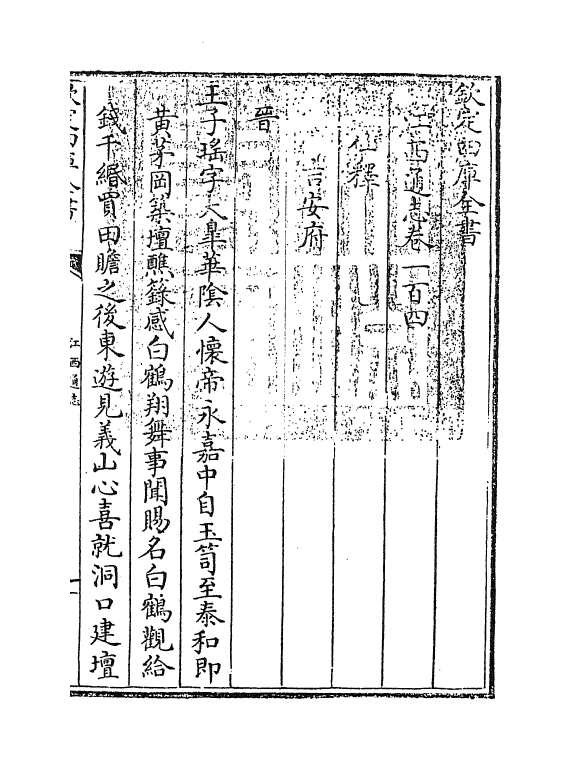 欽定四庫全書
江西通志卷一百四
仙釋
吉安府
晉
王子瑤字大臯華陰人懷帝永嘉中自玉笥至泰和即
黃茅岡築壇醮籙感白鶴翔舞事聞賜名白鶴觀給
錢千緡買田贍之後東遊見義山心喜就洞口建壇
欽定四庫全書
江西通志
一